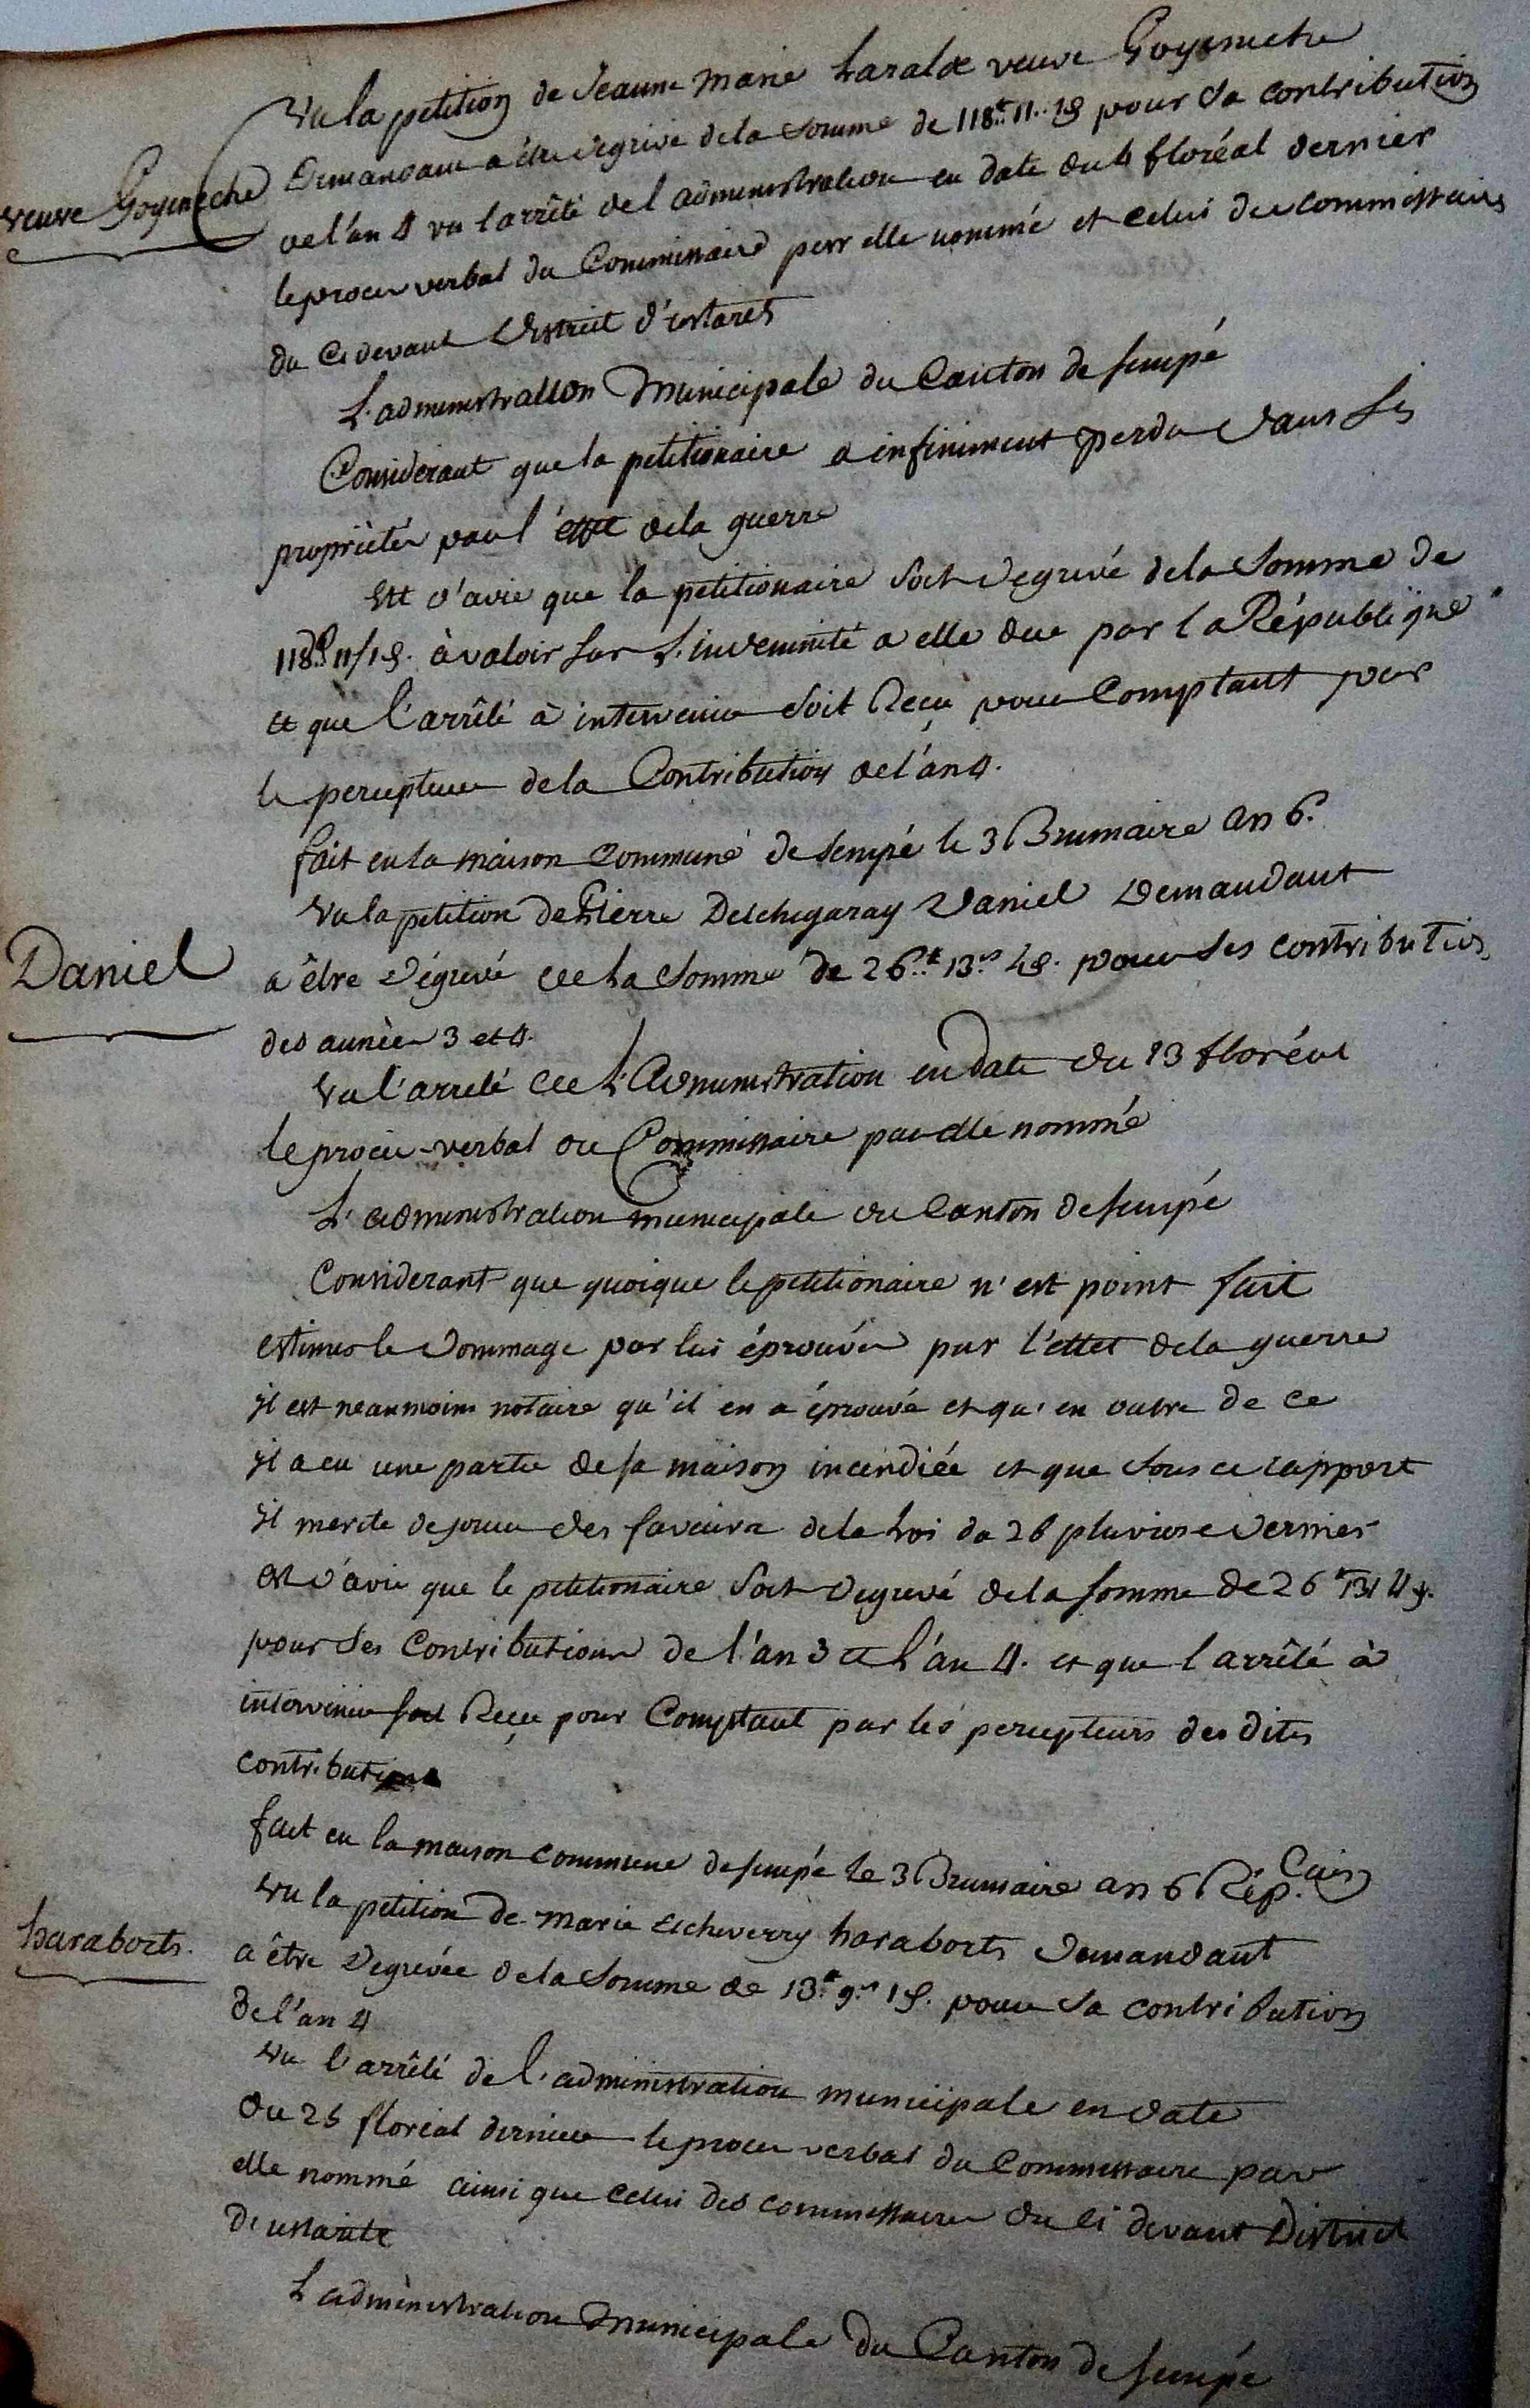 Vu la petition de Jeanne Marie Laralde veuve Goyeneche
veuve Goyeneche
Demandant a être degrivé dela Somme de 118.tt 11.. 18 pour sa contribution
de l'an 4 vu l'arrêté del administration en date du 4 floréal dernier
le proces verbal du Commissaire parr elle nommé et celui des commissaires
du Ci devant District d'ustarits
L'administration Municipale du Canton de sempé
Considerant que la petitionaire a infiniment perdu dans ses
propriètés par l'éffet dela guerre
Est d'avis que la petitionaire soit degrevé dela Somme de
118.tt 11/1 8. à valoir sur L'indemnité a elle due par la République
et que l'arrêté à intervenir soit Reçu pour Comptant par
le percepteur dela Contribution de l'an 4.
fait en la maison Commune de sempé le 3 Brumaire an 6.
Vu la petition de Pierre Detchegaray Daniel Demandant
Daniel
a être dégrevé de la Somme de 26.tt 13.s 48. pour ses contributions
des années 3 et 4.
Vu l'arreté de L'Administration en date du 23 floréal
le procès-verbal du Commissaire par elle nommé
L'administration municipale du Canton de sempé
Considerant que quoique le petitionaire n'est point fait
estimer le dommage par lui éprouvé par l'effet dela guerre
il est neanmoins notoire qu'il en a éprouvé et qu'en outre de ce
il a eu une partie de sa maison incendiée et que sous ce rapport
il merite de jouir des faveurs dela Loi du 26 pluviose dernier
est d'avis que le petitionaire soit degrevé dela somme de 26 tt 13/ 4 8.
pour ses Contributions de l'an 3 et l'an 4. et que l'arrêté à
intervenir soit Reçu pour Comptant par les percepteurs des dites
contributions
fait en la maison commune de sempé le 3 Brumaire an 6 Rép.cain
Vu la petition de marie Etcheverry haraborts demandant
haraborts.
a être degrevée dela Somme de 13.tt 9.s 1 8. pour sa contribution
de l'an 4
Vu l'arrêté de l'administration municipale en date
du 25 floréal dernier le proces verbal du Commissaire par
elle nommé ainsi que celui des commissaires du ci devant District
D'ustarits
L'administration Municipale du Canton de sempé